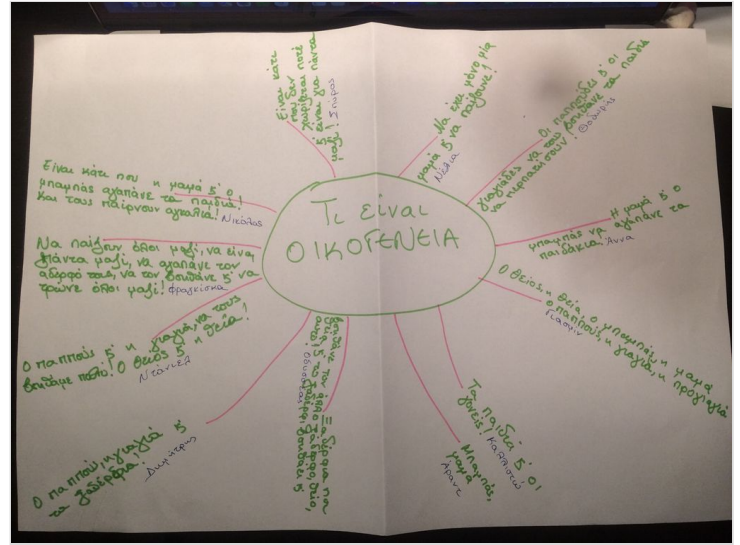 Τι είναι
ΟΙΚΟΓΕΝΕΙΑ
Είναι κάτι
που δεν
χωρίζεται ποτέ
5 είναι για πάντα
μαζί! Σπύρος
Να έχει μόνο μία
μαμά 5 να παίζουνε!
Νεφέλια
Οι παππούδες 5' οι
γιαγιάδες να του βοηθάνε τα παιδιά
να περπατήσουν! Θοδωρής
Η μαμά 5 ο
μπαμπάς να αγαπάνε τα
παιδάκια. Άννα
Ο θείος, η θεία, ο μπαμπάς, η μαμά
ο παππούς, η γιαγιά, η προγιαγιά
Γιασμίν
Τα παιδιά 5' οι
γονείς! Καλλιστώ
Μπαμπάς,
μαμά
Άραντ
Ξαδέρφια που
βοηθάνε τον άλλο ξάδερφο, θείο,
5
Οδυσσέας
Ο παππούς, η γιαγιά 5
τα ξαδέρφια!
Δημήτρης
Ο παππούς 5' η γιαγιά, να τους
βοηθάμε πολύ! Ο θείος 5 η θεία!
Ντάνιελ
Να παίζουν όλοι μαζί, να είναι
πάντα μαζί, να αγαπάνε τον
αδερφό τους, να τον βοηθάνε 5' να
τρώνε όλοι μαζί! Φραγκίσκα
Είναι κάτι που η μαμά 5' ο
μπαμπάς αγαπάνε τα παιδιά!
και τους παίρνουν αγκαλιά! Νικόλας